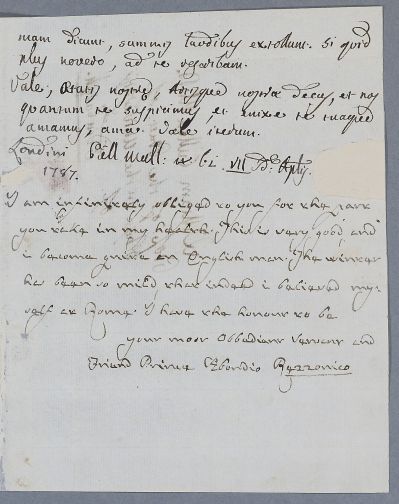 mam dicunt, summis laudibus extollunt. Si quid
plus novero, ad te rescribam.
Vale, Ætatis nostræ, Artisque nostræ decus, et nos
quantum te suspicimus, et enixe te tuaque
amamus, ama. Vale iterum.
Londini Pall Mall: n: 61 VII Ds: Aplis.
1787.
I am intinitely obliged to you for the part
you take in my health. This is very good and
i become quite an English man. The winter
has been so mild that indeed i believed my:
self at Rome. I have the honour to be
your moor Obbediant Servant and
Friand Prince Abondio Rezzonico